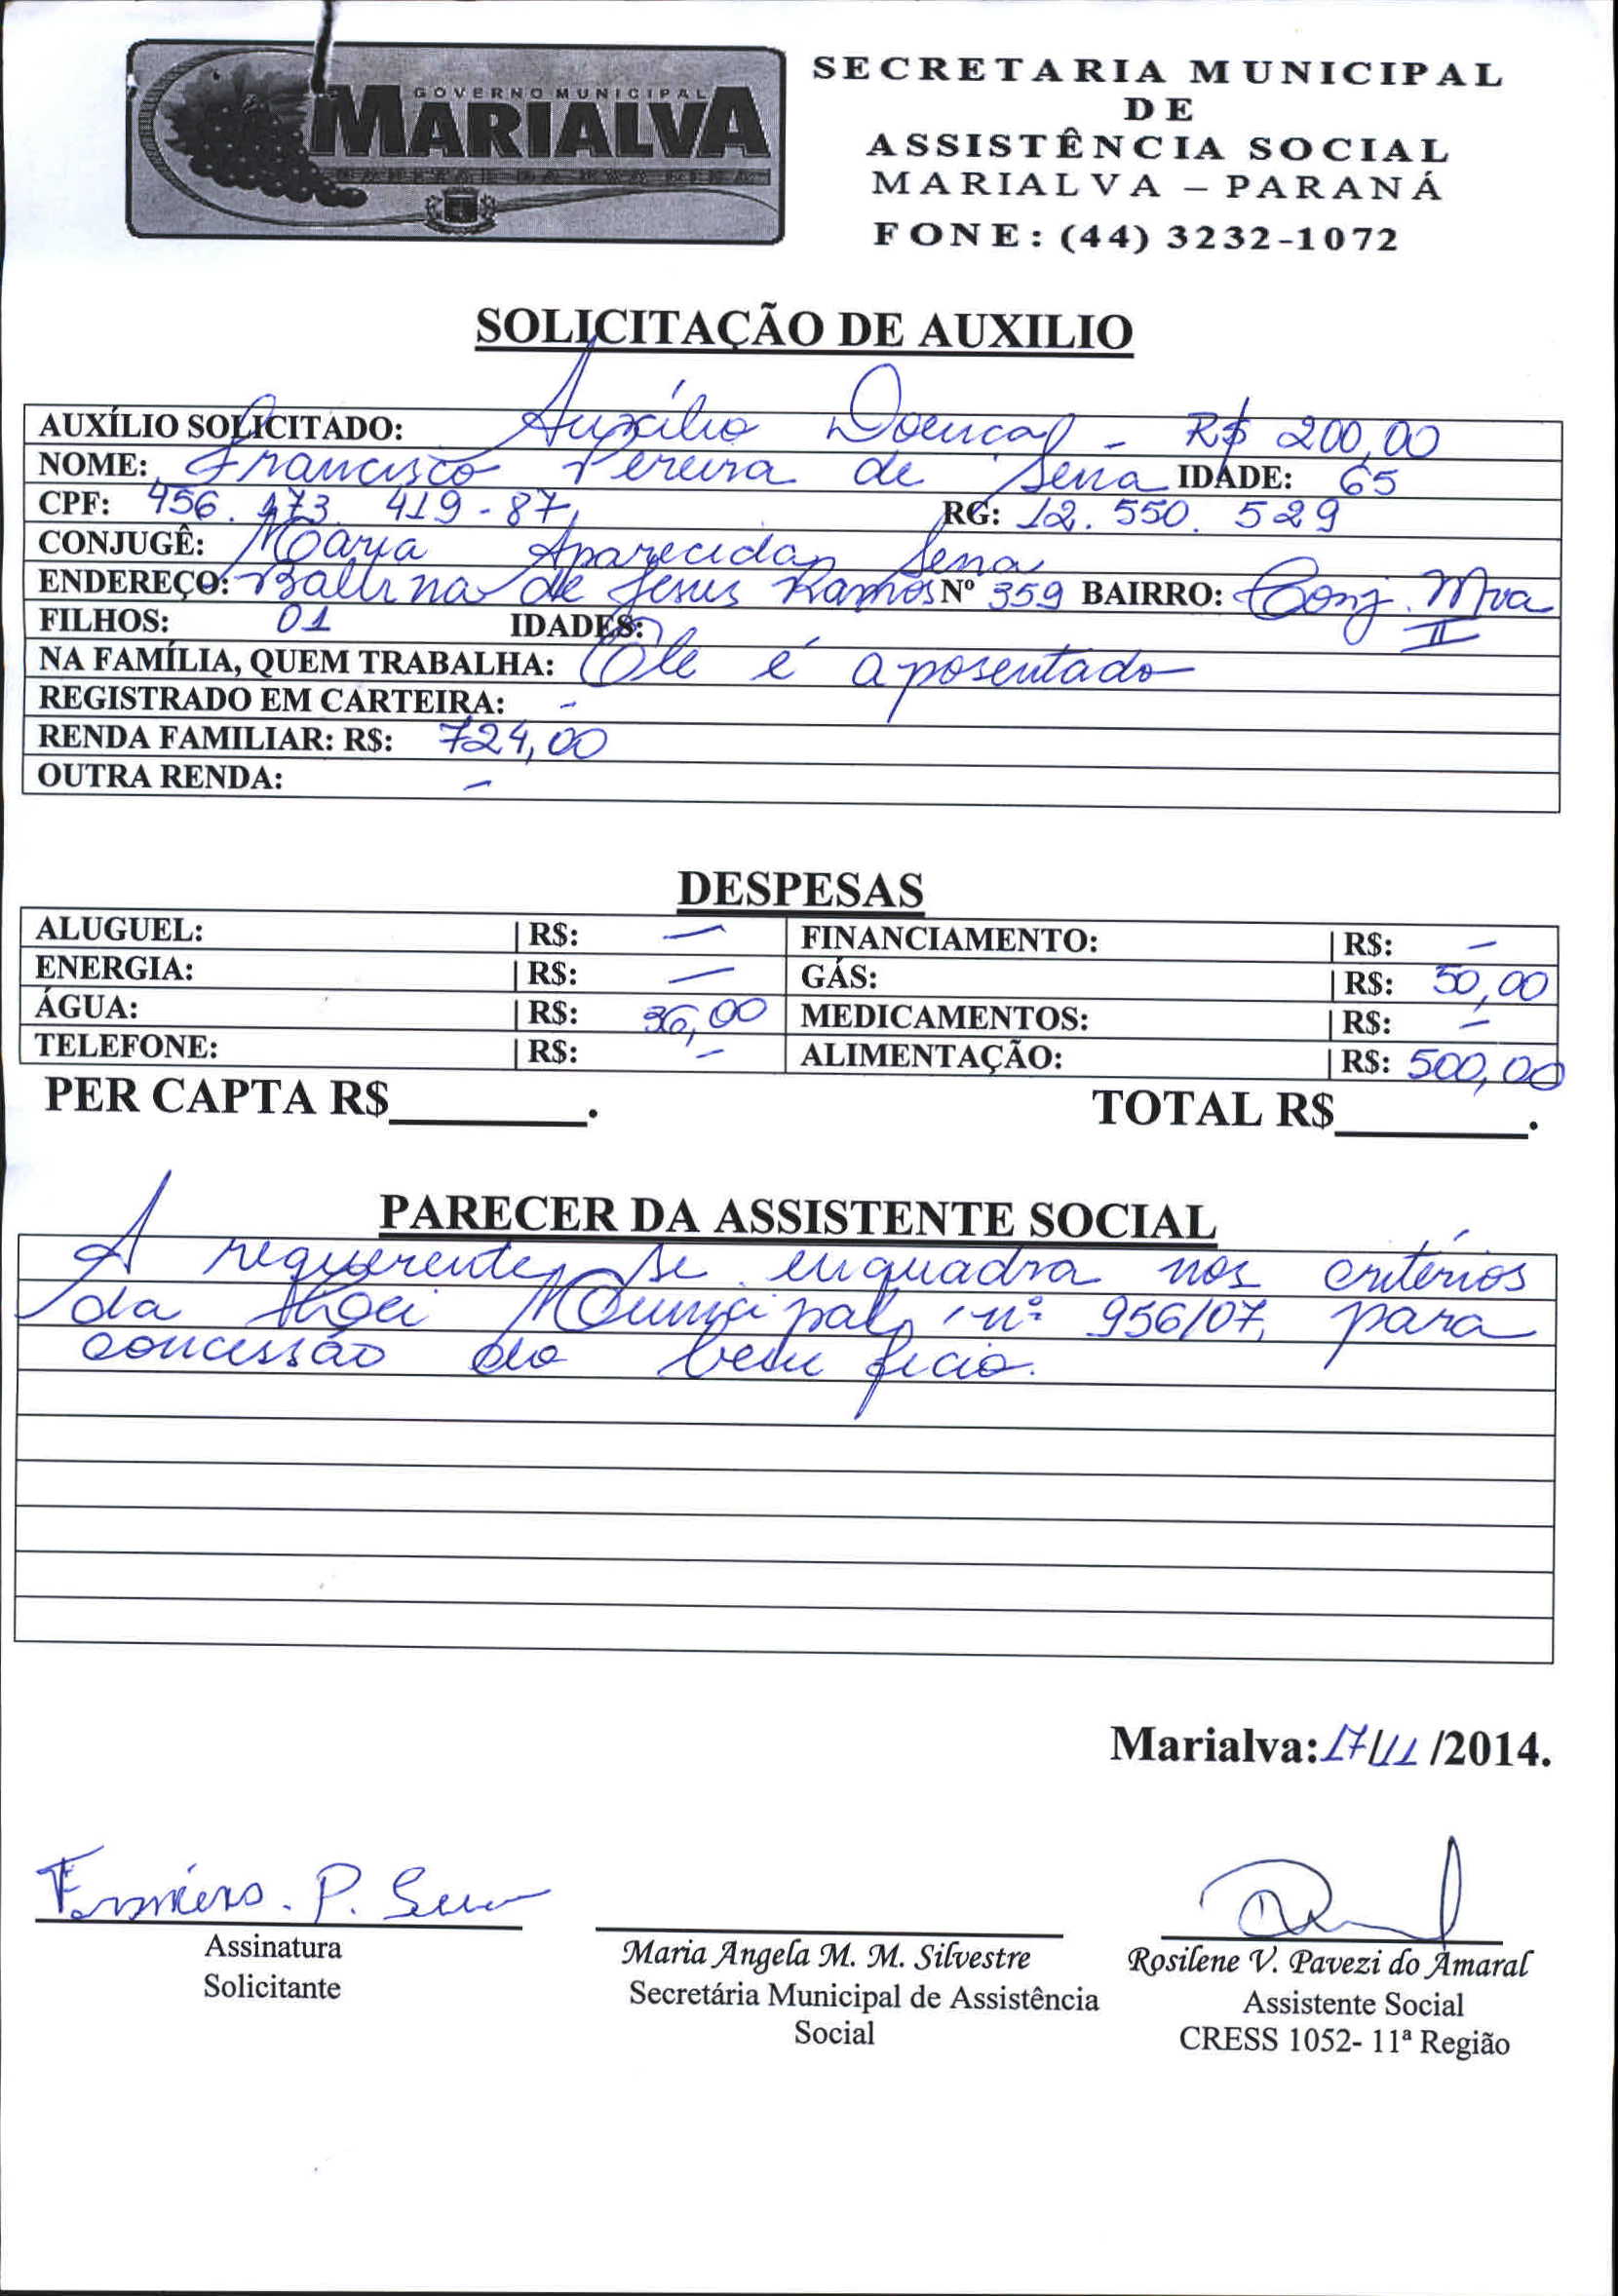 GOVERNO MUNICIPAL
MARIALVA
CAPITAL DA UVA FINA
SECRETARIA MUNICIPAL
DE
ASSISTÊNCIA SOCIAL
MARIALVA – PARANÁ
FONE: (44) 3232-1072
SOLICITAÇÃO DE AUXILIO
AUXÍLIO SOLICITADO: Auxílio Doença - R$ 200,00
NOME: Francisco Pereira de Sena IDADE: 65
CPF: 456.173.419-87 RG: 12.550.529
CONJUGÊ: Maria Aparecida Sena
ENDEREÇO: de Jesus Ramos Nº 359 BAIRRO: Conj. Mva II
FILHOS: 01 IDADES:
NA FAMÍLIA, QUEM TRABALHA: Ele é aposentado
REGISTRADO EM CARTEIRA: -
RENDA FAMILIAR: R$: 724,00
OUTRA RENDA: -
DESPESAS
ALUGUEL: | R$: — FINANCIAMENTO: | R$: -
ENERGIA: | R$: — GÁS: | R$: 50,00
ÁGUA: | R$: 36,00 MEDICAMENTOS: | R$: -
TELEFONE: | R$: - ALIMENTAÇÃO: | R$: 500,00
PER CAPTA R$________. TOTAL R$________.
PARECER DA ASSISTENTE SOCIAL
A requerente se enquadra nos critérios
da Lei Municipal nº 956/07, para
concessão do benefício.
Marialva: 17/11/2014.
P. Sena
Assinatura
Solicitante
Maria Angela M. M. Silvestre
Secretária Municipal de Assistência
Social
Rosilene V. Pavezi do Amaral
Assistente Social
CRESS 1052- 11ª Região